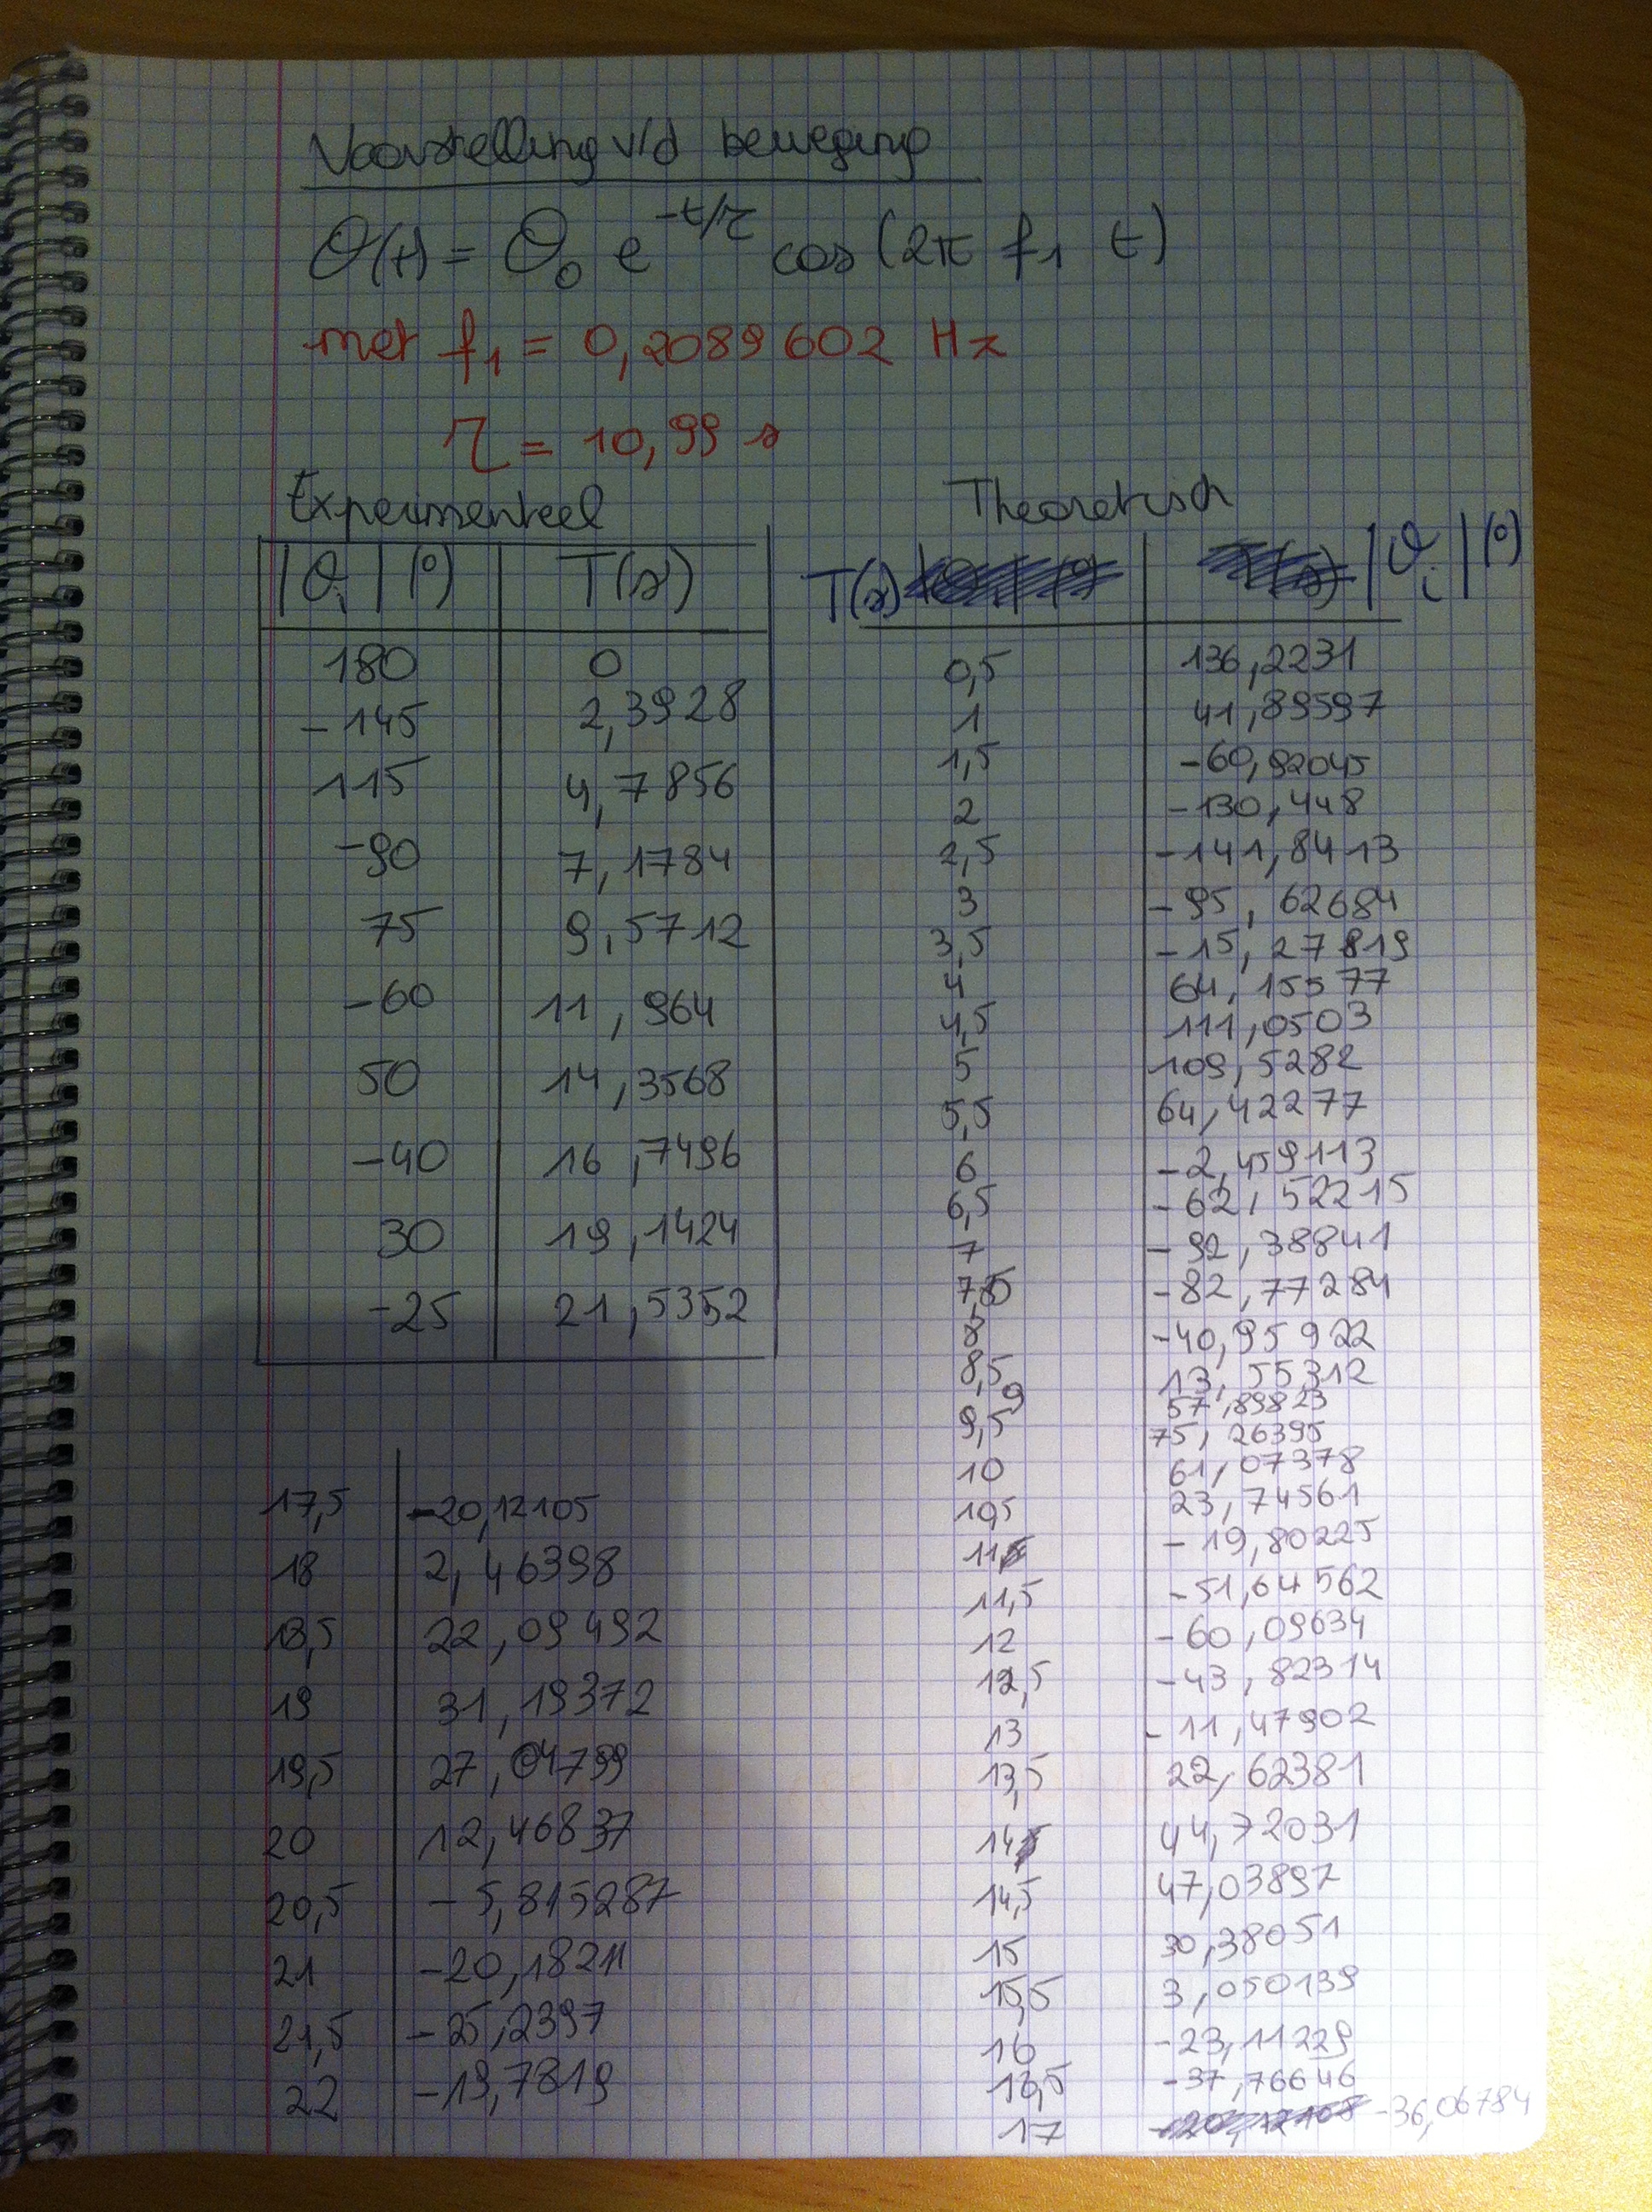 Voorstelling v/d beweging
θ(t) = θ₀ e^(-t/τ) cos(2π f₁ t)
met f₁ = 0,2089602 Hz
τ = 10,99 s
Experimenteel
|θᵢ|(°) T(s)
180 0
-145 2,3928
115 4,7856
-90 7,1784
75 9,5712
-60 11,964
50 14,3568
-40 16,7496
30 19,1424
-25 21,5352
Theoretisch
T(s) |θᵢ|(°)
0,5 136,2231
1 41,89597
1,5 -60,92045
2 -130,448
2,5 -141,8413
3 -95,62684
3,5 -15,27819
4 64,15577
4,5 111,0503
5 109,5282
5,5 64,42277
6 -2,459113
6,5 -62,52215
7 -92,38841
7,5 -82,77284
8 -40,95922
8,5 13,55312
9 57,89823
9,5 75,26395
10 61,07378
10,5 23,74561
11 -19,80225
11,5 -51,64562
12 -60,09634
12,5 -43,82314
13 -11,47902
13,5 22,62381
14 44,72031
14,5 47,03897
15 30,38051
15,5 3,050139
16 -23,11229
16,5 -37,76646
17 -36,06784
17,5 -20,12105
18 2,46398
18,5 22,09492
19 31,19372
19,5 27,04799
20 12,46837
20,5 -5,815287
21 -20,18211
21,5 -25,2397
22 -19,7819